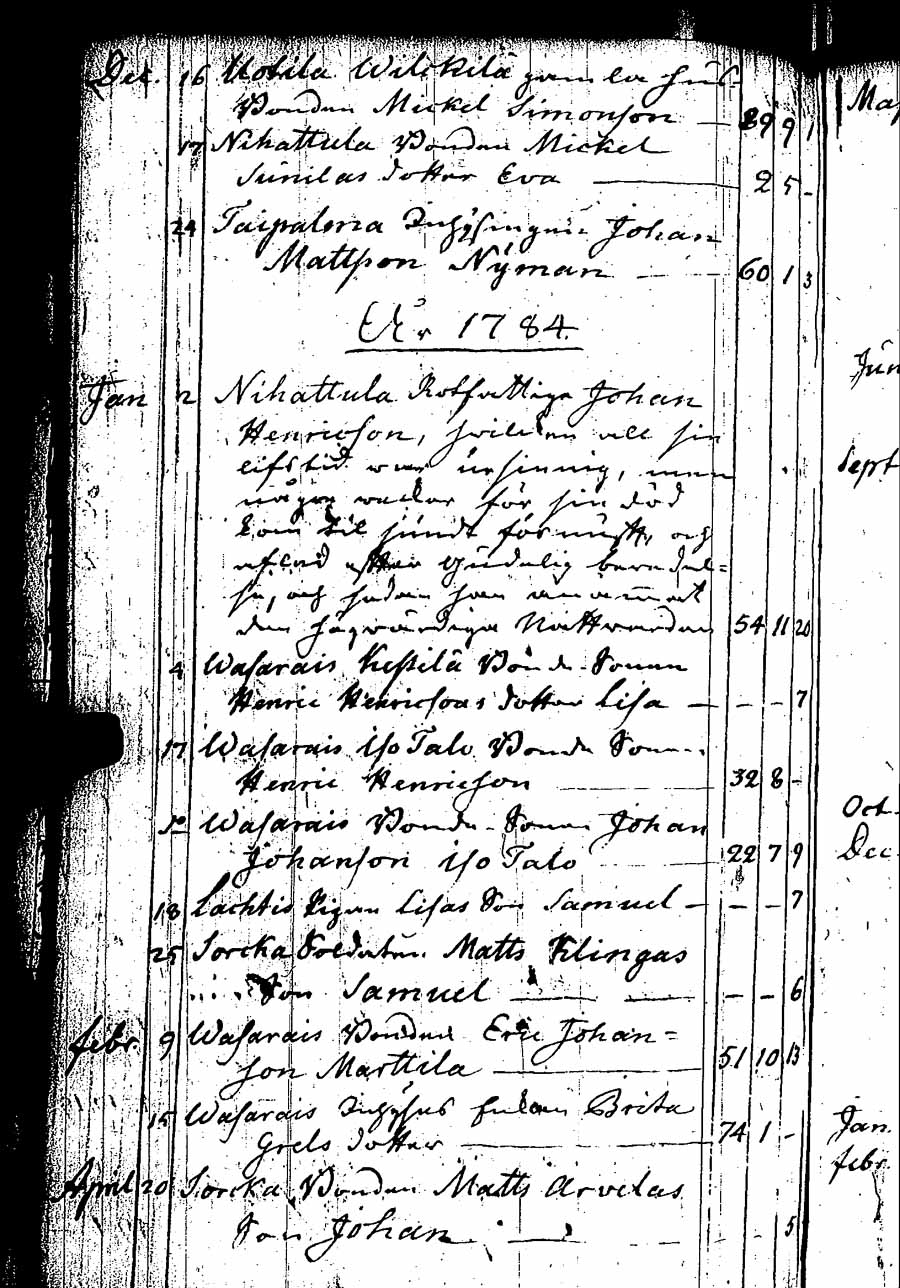 Dec. 16 Uotila Wilckilä gamla hus-
Bonden Mickel Simonson — 89 9 1
17 Nihattula Bonden Mickel
Sunilas dotter Eva — 2 5 -
24 Taipalena Inhysingen Johan
Mattsson Nÿman — 60 1 3
År 1784.
Jan 2 Nihattula Rotfattige Johan
Henricson, hvilken all sin
lifstid war ursinnig, men
några veckor för sin död
kom til sundt förnuft, och
afled efter gudelig beredel-
se, och sedan han anam̅at
den högwärdiga Nattvarden 54 11 20
4 Wasarais Kessilä Bonde Sonen
Henric Henricsons dotter Lisa — - - 7
17 Wasarais Iso Talo Bonde Sonen
Henric Henricson — 32 8 -
Wasarais Bonde Sonen Johan
Johanson Iso Talo — 22 7 9
18 Lachtis Pigan Lisas Son Samuel - - - 7
25 Sorcka Soldaten Matts Klingas
Son Samuel — - - 6
febr. 9 Wasarais Bonden Eric Johan=
son Marttila — 51 10 13
15 Wasarais Inhyses Enkan Brita
Grels dotter — 74 1 -
April 20 Sorcka Bonden Matts Arvelas
Son Johan — 5
Maj
Jun
Sept
Oct.
Dec.
Jan.
febr.